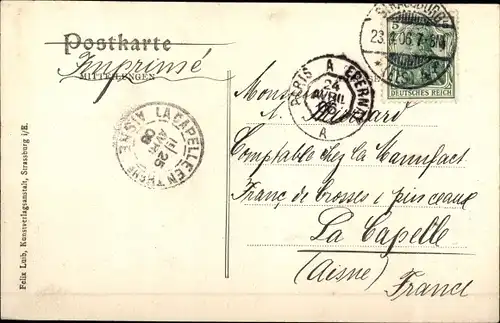 Postkarte
Imprimé
MITTEILUNGEN
STRASSBURG
23. 4. 06. 7-8 N
DEUTSCHES REICH
PARIS A EPERNAY
24
AVRIL
06
A
LA CAPELLE-EN-THCHE
AISNE
25
AVR
06
Monsieur
A.
Comptable chez la Manufact.
Franç. de brosses & pinceaux
La Capelle
(Aisne)
France
Felix Luib, Kunstverlagsanstalt, Strassburg i/E.